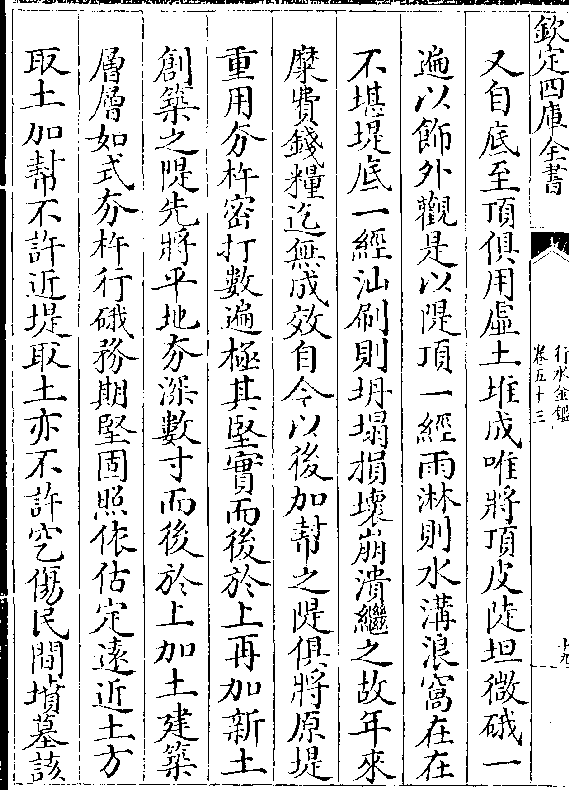 欽定四庫全書
行水金鑑
卷五十三
十九
又自底至頂俱用虛土堆成唯將頂皮陡坦微硪一
遍以飾外觀是以隄頂一經雨淋則水溝浪窩在在
不堪堤底一經汕刷則坍塌損壞崩潰繼之故年來
糜費錢糧迄無成效自今以後加幫之隄俱將原堤
重用夯杵密打數遍極其堅實而後於上再加新土
創築之隄先將平地夯深數寸而後於上加土建築
層層如式夯杵行硪務期堅固照依估定遠近土方
取土加幫不許近堤取土亦不許挖傷民間墳墓該